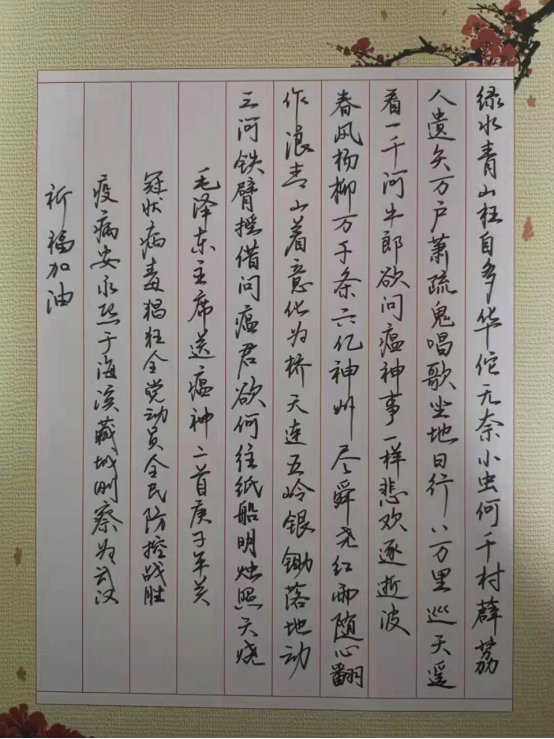 绿水青山枉自多华佗无奈小虫何千村薜荔
人遗矢万户萧疏鬼唱歌坐地日行八万里巡天遥
看一千河牛郎欲问瘟神事一样悲欢逐逝波
春风杨柳万千条六亿神州尽舜尧红雨随心翻
作浪青山着意化为桥天连五岭银锄落地动
三河铁臂摇借问瘟君欲何往纸船明烛照天烧
毛泽东主席送瘟神二首庚子年关
冠状病毒猖狂全党动员全民防控战胜
疫病安永熙于海滨藏城刚察为武汉
祈福加油